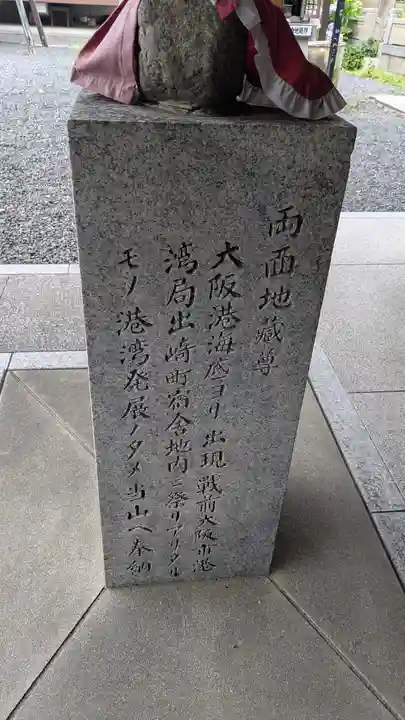 両面地蔵尊
大阪港海底ヨリ出現戦前大阪市港
湾局出崎町宿舎地内ニ祭リアリタル
モノ港湾発展ノタメ当山ヘ奉納